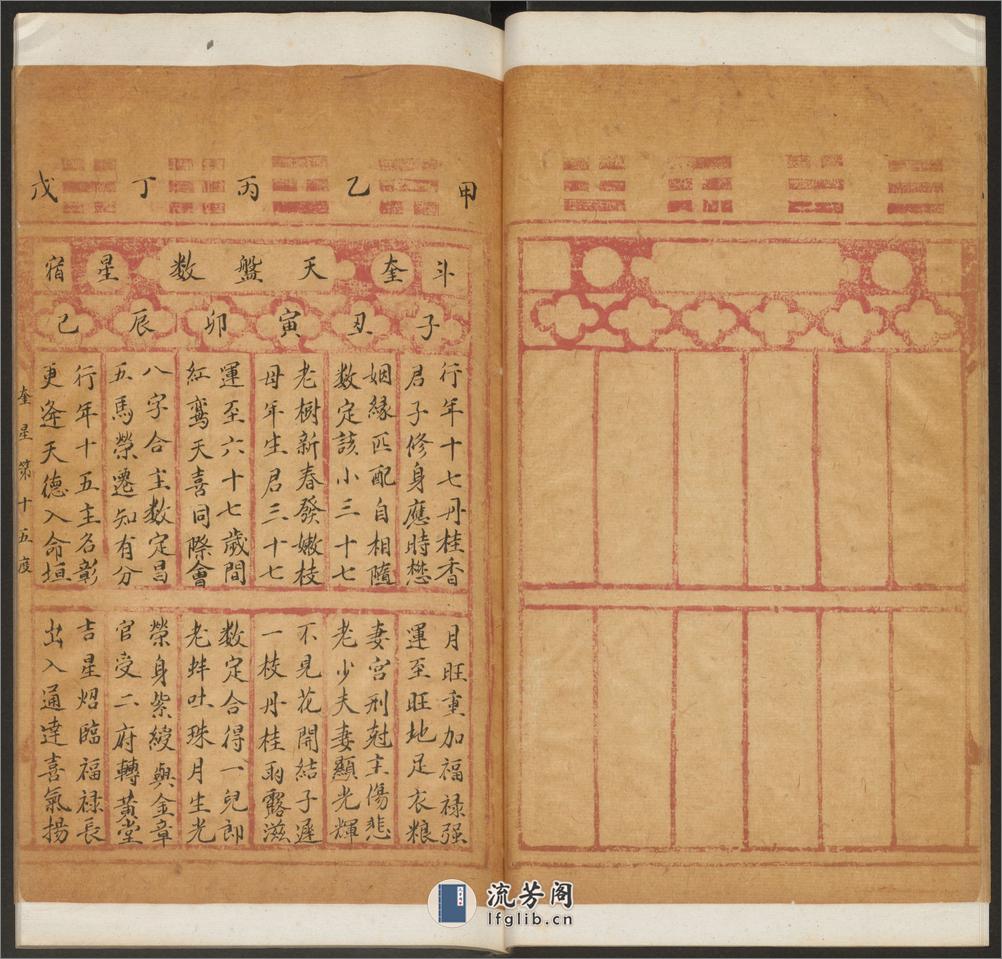 甲 乙 丙 丁 戊
斗 奎 天 盤 数 星 宿
子 丑 寅 卯 辰 巳
行年十七丹桂香
君子修身應時懋
姻緣匹配自相隨
数定該小三十七
老樹新春發嫩枝
母年生君三十七
運至六十七歲間
紅鸞天喜同際會
八字合主数定昌
五馬榮遷知有分
行年十五主名彰
更逄天德入命垣
月旺重加福禄强
運至旺地足衣粮
妻宮刑尅主傷悲
老少夫妻顯光輝
不見花開結子遲
一枝丹桂雨露滋
数定合得一兒郎
老蚌吐珠月生光
榮身紫綬與金章
官受二府轉黃堂
吉星炤臨福禄長
出入通達喜氣揚
奎星第十五度
流芳阁
lfglib.cn